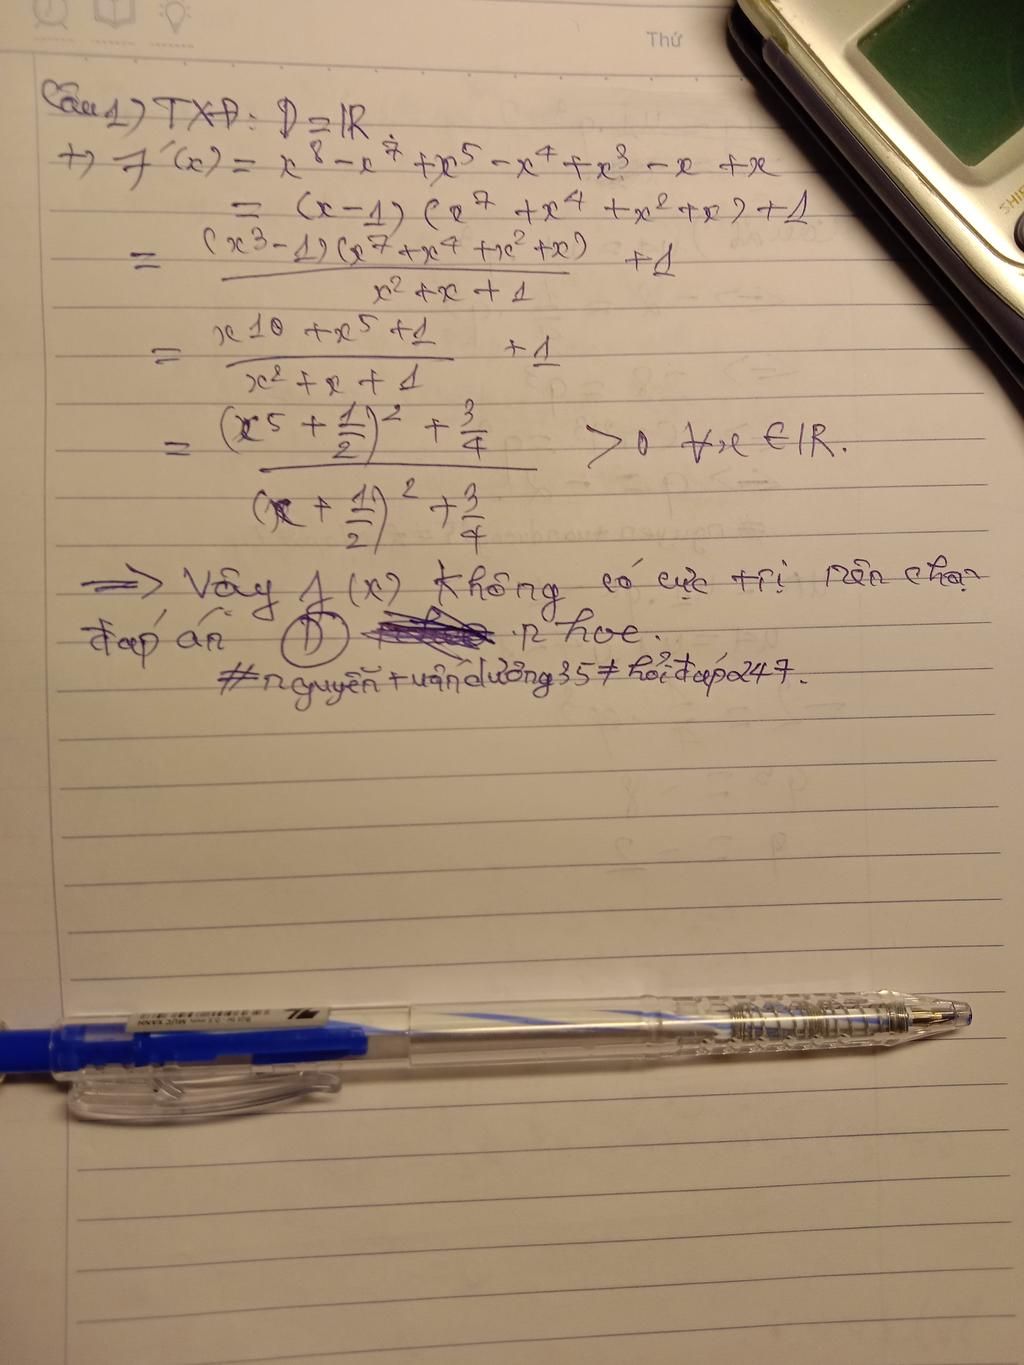 Thứ
Câu 1) TXĐ: D = IR
+) f'(x) = x⁸ - x⁷ + x⁵ - x⁴ + x³ - x + x
= (x-1) (x⁷ + x⁴ + x² + x) + 1
= (x³-1)(x⁷+x⁴+x²+x) / x²+x+1 + 1
= x10 + x⁵ + 1 / x² + x + 1 + 1
= (x⁵ + 1/2)² + 3/4 / (x + 1/2)² + 3/4 > 0 ∀x ∈ IR.
=> Vậy f(x) không có cực trị nên chọn
đáp án D nhoe.
#nguyễntuấndường35 ≠ hỏiđáp247.